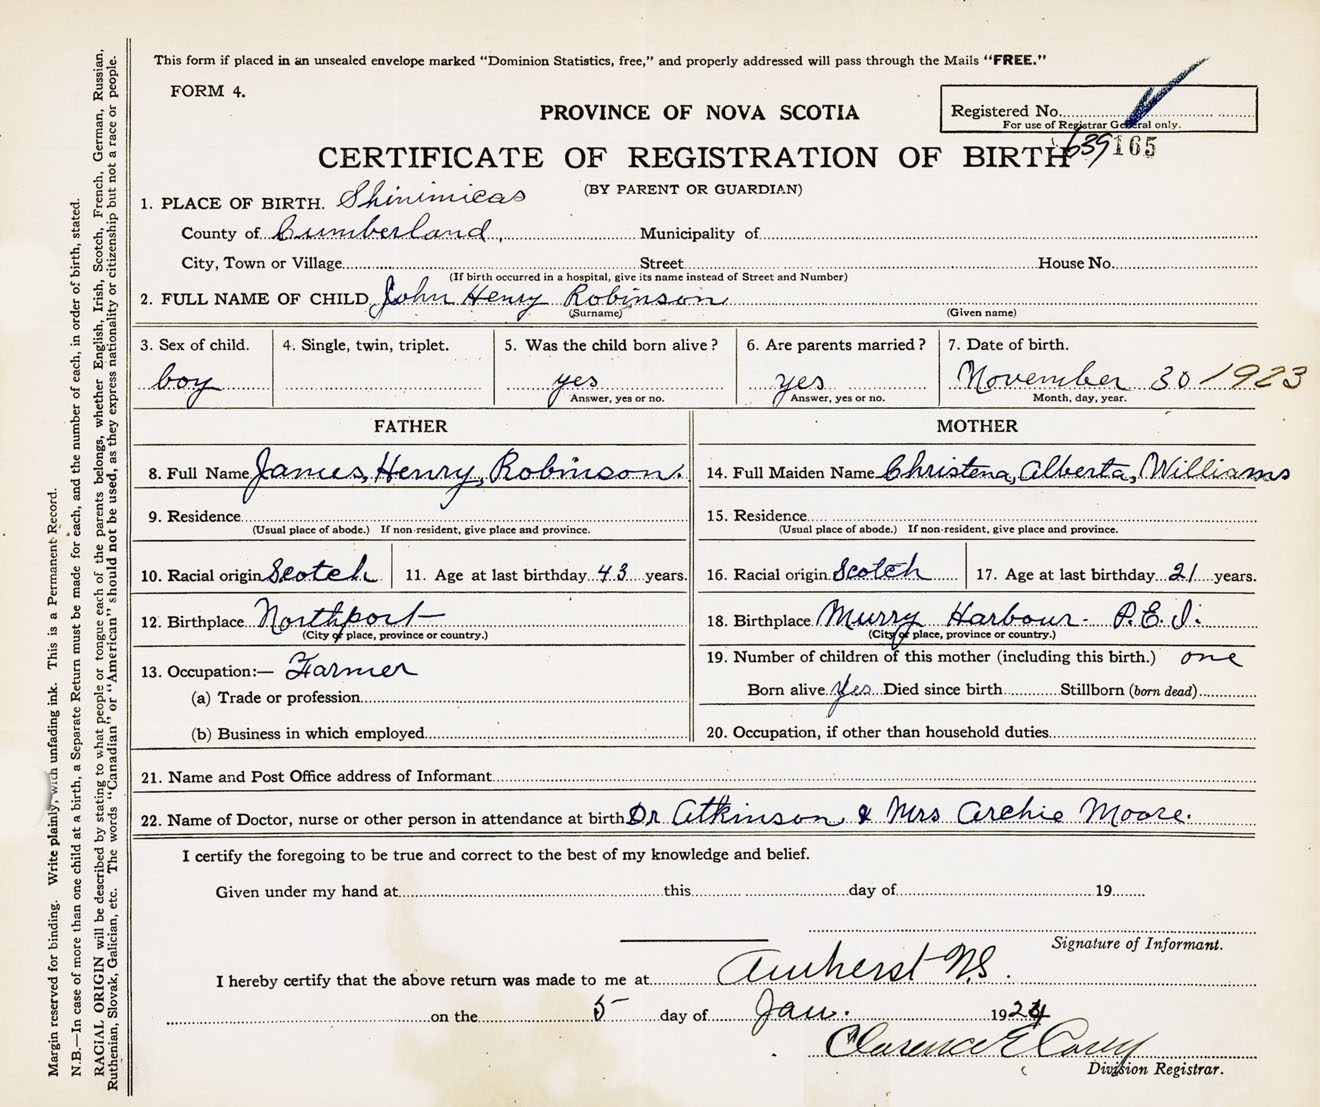 This form if placed in an unsealed envelope marked “Dominion Statistics, free,” and properly addressed will pass through the Mails “FREE.”
FORM 4.
PROVINCE OF NOVA SCOTIA
Registered No.
For use of Registrar General only.
639165
CERTIFICATE OF REGISTRATION OF BIRTH
(BY PARENT OR GUARDIAN)
1. PLACE OF BIRTH. Shinimicas
County of Cumberland, Municipality of
City, Town or Village Street House No.
(If birth occurred in a hospital, give its name instead of Street and Number)
2. FULL NAME OF CHILD John Henry Robinson
(Surname) (Given name)
3. Sex of child. 4. Single, twin, triplet. 5. Was the child born alive? 6. Are parents married? 7. Date of birth.
boy yes yes November 30 1923
Answer, yes or no. Answer, yes or no. Month, day, year.
FATHER MOTHER
8. Full Name James, Henry, Robinson. 14. Full Maiden Name Christena, Alberta, Williams
9. Residence 15. Residence
(Usual place of abode.) If non-resident, give place and province. (Usual place of abode.) If non-resident, give place and province.
10. Racial origin Scotch 11. Age at last birthday 43 years. 16. Racial origin Scotch 17. Age at last birthday 21 years.
12. Birthplace Northport 18. Birthplace Murry Harbour- P.E.I.
(City or place, province or country.) (City or place, province or country.)
13. Occupation:— Farmer 19. Number of children of this mother (including this birth.) one
(a) Trade or profession Born alive Yes Died since birth Stillborn (born dead)
(b) Business in which employed 20. Occupation, if other than household duties
21. Name and Post Office address of Informant
22. Name of Doctor, nurse or other person in attendance at birth Dr Atkinson & Mrs Archie Moore.
I certify the foregoing to be true and correct to the best of my knowledge and belief.
Given under my hand at this day of 19
Signature of Informant.
I hereby certify that the above return was made to me at Amherst N.S.
on the 5 day of Jan. 1924
Clarence E
Division Registrar.
Margin reserved for binding. Write plainly, with unfading ink. This is a Permanent Record.
N.B.—In case of more than one child at a birth, a Separate Return must be made for each, and the number of each, in order of birth, stated.
RACIAL ORIGIN will be described by stating to what people or tongue each of the parents belongs, whether English, Irish, Scotch, French, German, Russian,
Ruthenian, Slovak, Galician, etc. The words “Canadian” or “American” should not be used, as they express nationality or citizenship but not a race or people.